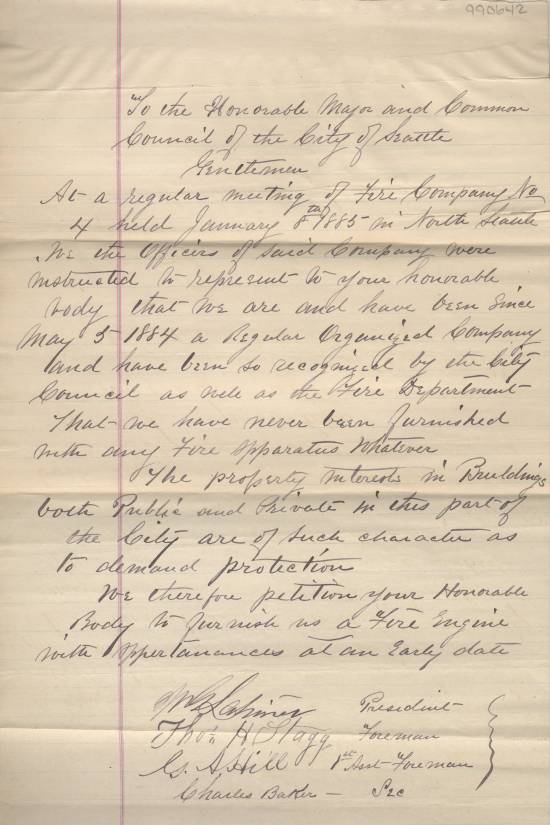 990642
To the Honorable Mayor and Common
Council of the City of Seattle
Gentlemen
At a regular meeting of Fire Company No
4 held January 8th 1885 in North Seattle
We the Officers of said Company were
instructed to represent to your honorable
body that we are and have been Since
May 5 1884 a Regular Organized Company
and have been so recognized by the City
Council as well as the Fire Department
That we have never been furnished
with any Fire Apparatus Whatever
The property interests in Buildings
both Public and Private in this part of
the City are of such character as
to demand protection
We therefore petition your Honorable
Body to furnish us a Fire Engine
with appertanances at an Early date
Latimer President
Thos H Stagg Foreman
G. A. Hill 1st Asst Foreman
Charles Baker — Sec